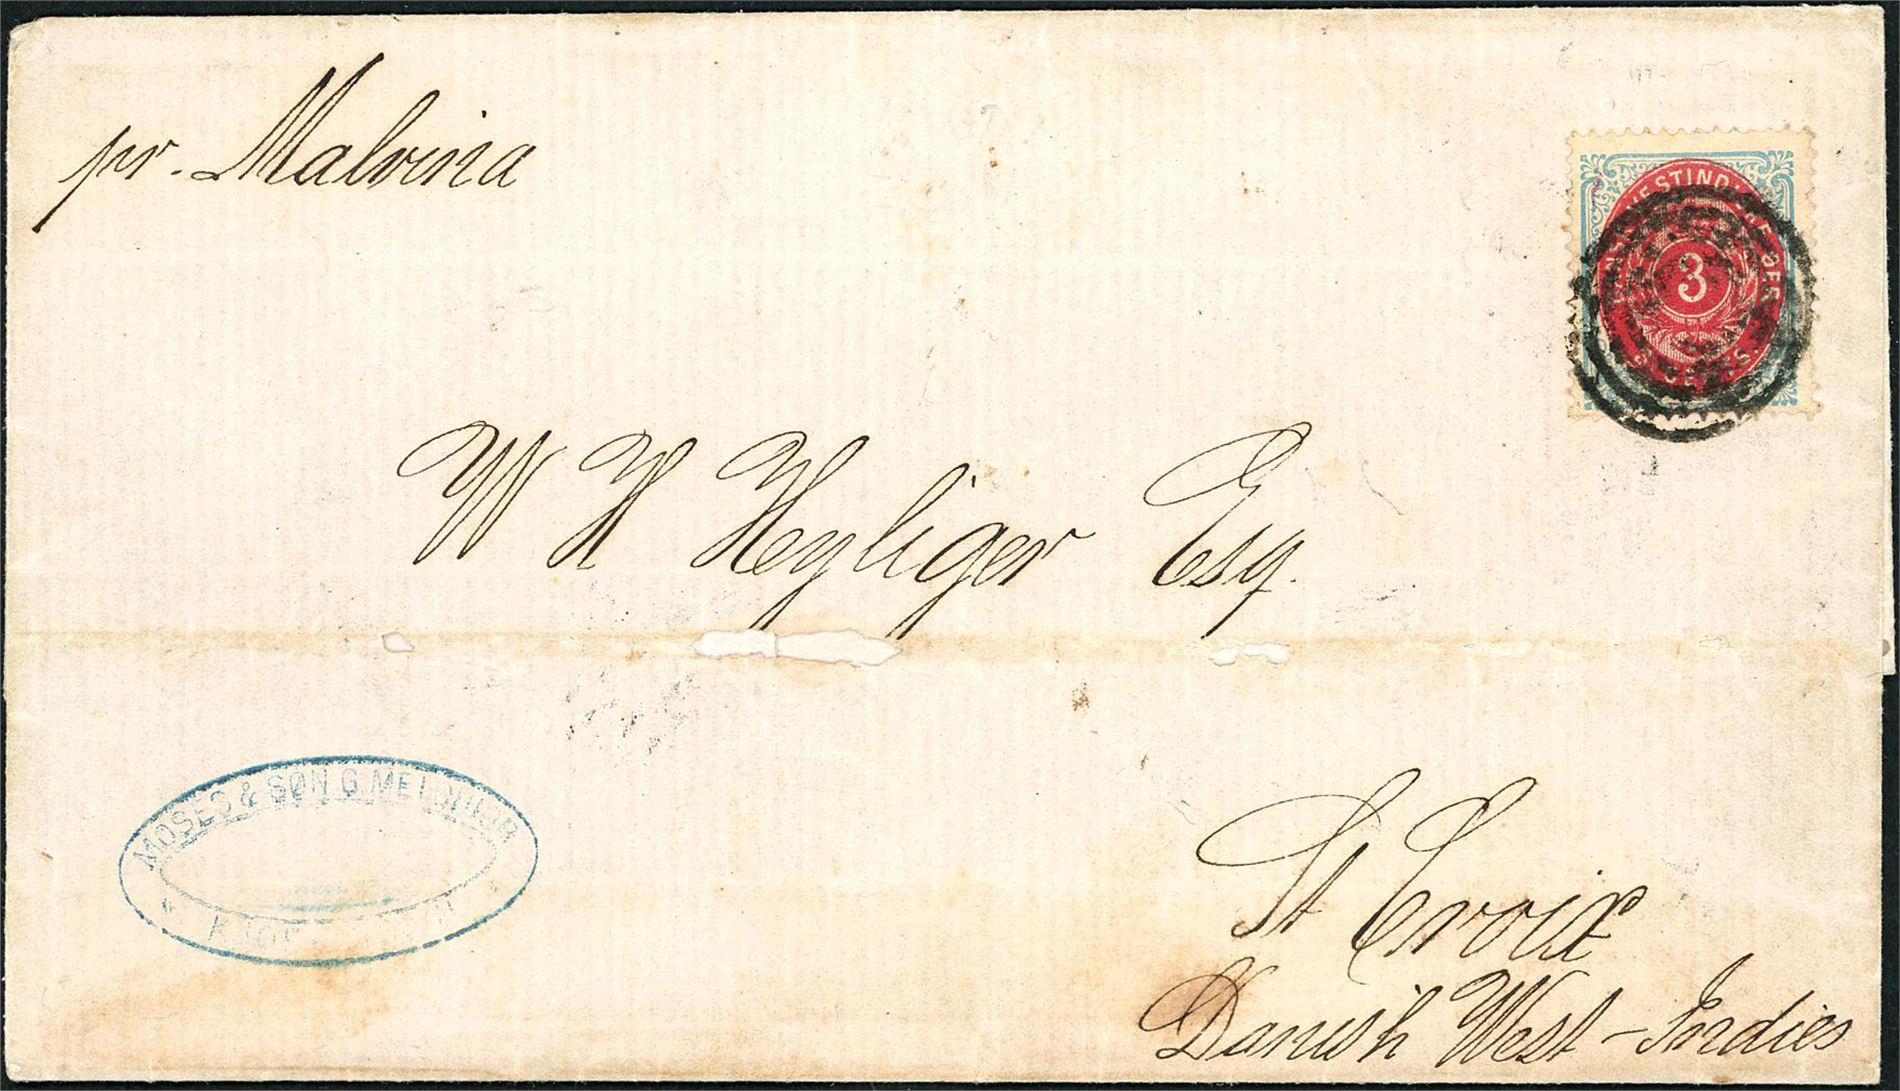 pr. Malvina
DANSK VESTINDISKE ØER
3
3 CENTS
W H Heyliger Esq.
MOSES & SØN G. MELCHIOR
St Croix
Danish West-Indies